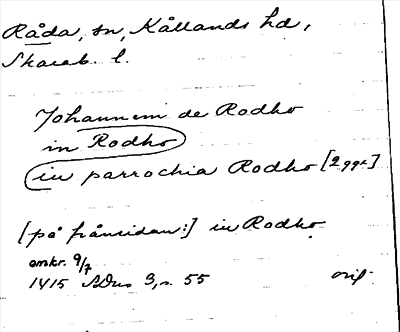 Råda, sn, Kållands hd,
Skarab. l.
Johannem de Rodho
in Rodho
in parrochia Rodho [2 ggr.]
[på frånsidan:] in Rodho
omkr. 9/7
1415 SDns 3, s. 55 orig.